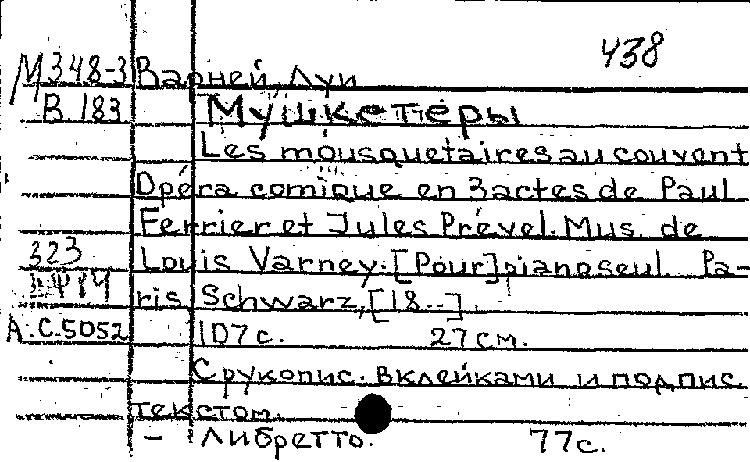 438
М348-3 Варней, Луи
В 183 Мушкетеры
Les mousquetaires au couvent
Opéra comique en 3 actes de Paul
Ferrier et Jules Prével. Mus. de
323 Louis Varney. [Pour] piano seul. Pa-
ris, Schwarz, [18--].
А.С.5052 107 с. 27 см.
С рукопис. вклейками и подпис.
текстом.
— Либретто. 77 с.